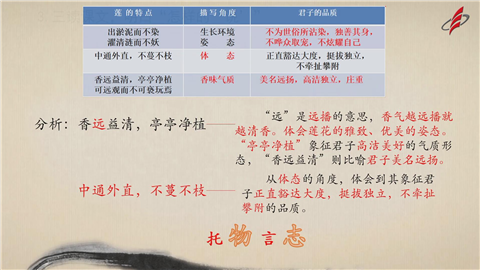 莲的特点 描写角度 君子的品质
出淤泥而不染 生长环境 不为世俗所沾染，独善其身，
濯清涟而不妖 姿态 不哗众取宠，不炫耀自己
中通外直，不蔓不枝 体态 正直豁达大度，挺拔独立，
不牵扯攀附
香远益清，亭亭净植 香味气质 美名远扬，高洁独立，庄重
可远观而不可亵玩焉
分析：香远益清，亭亭净植
“远”是远播的意思，香气越远播就
越清香。体会莲花的雅致、优美的姿态。
“亭亭净植”象征君子高洁美好的气质形
态，“香远益清”则比喻君子美名远扬。
中通外直，不蔓不枝
从体态的角度，体会到其象征君
子正直豁达大度，挺拔独立，不牵扯
攀附的品质。
托物言志